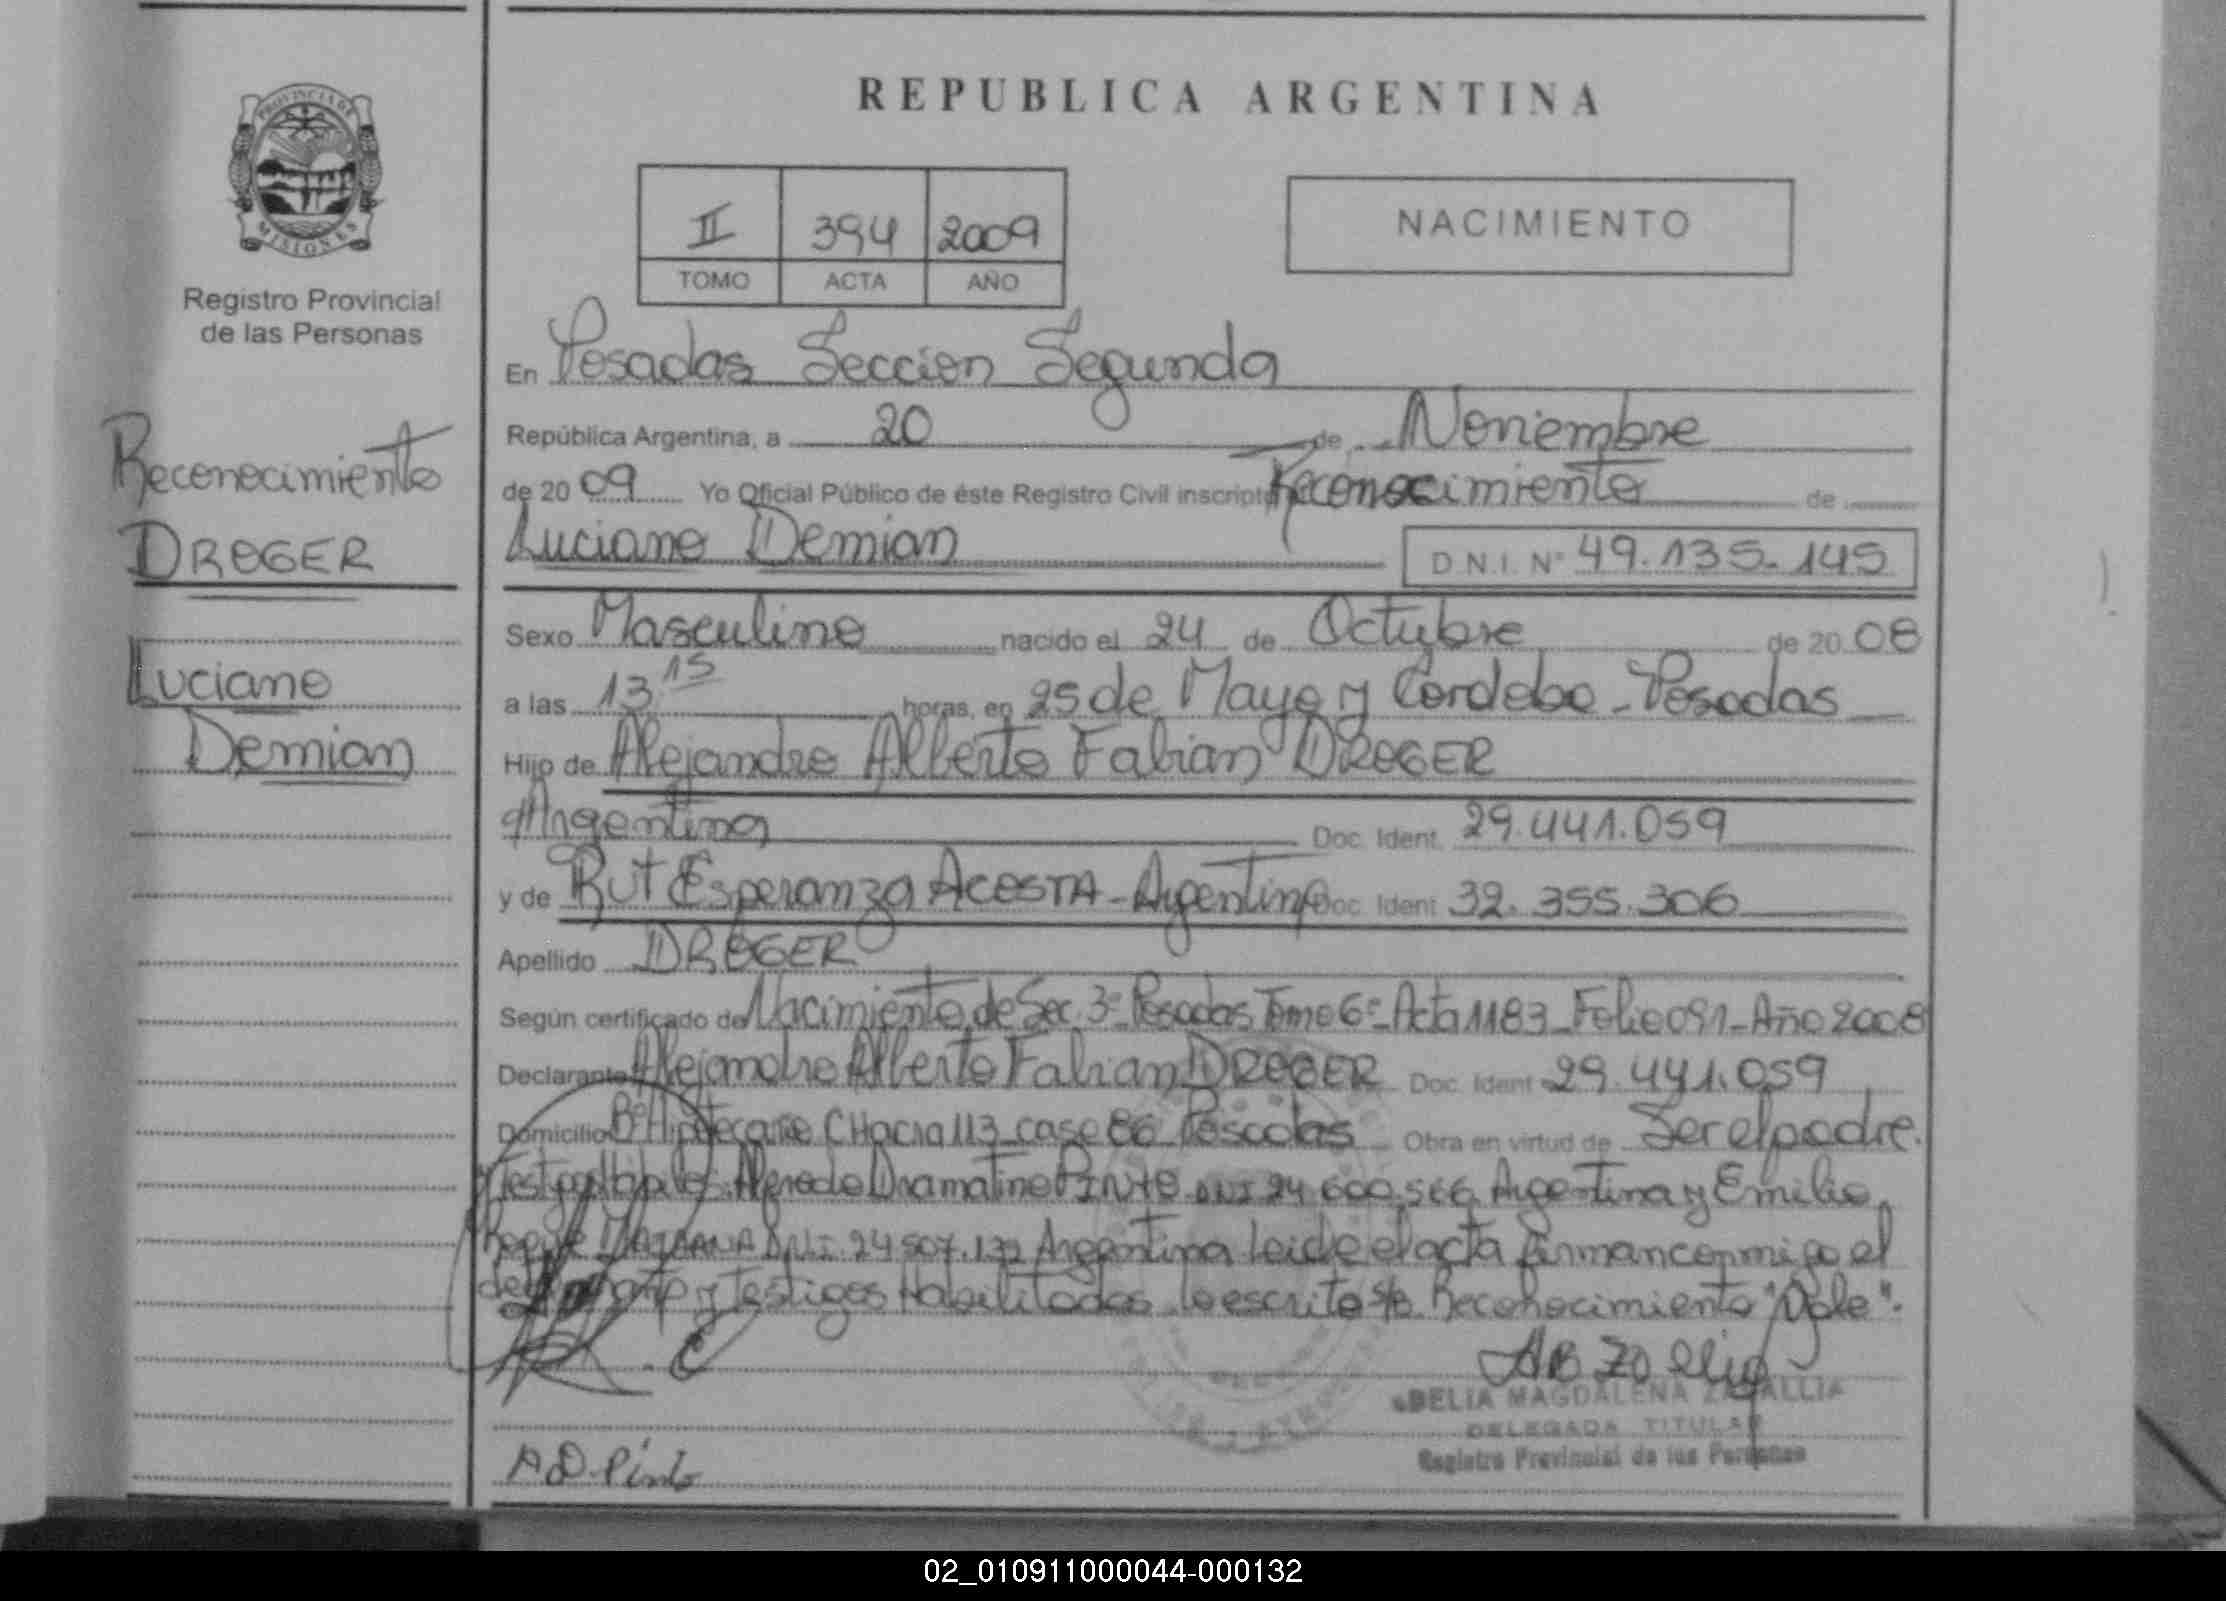 PROVINCIA DE
MISIONES
Registro Provincial
de las Personas
Reconocimiento
DROGER
Luciano
Demian
REPUBLICA ARGENTINA
II 394 2009
TOMO ACTA AÑO
NACIMIENTO
En Posadas Seccion Segunda
República Argentina, a 20 de Noviembre
de 2009 Yo Oficial Público de éste Registro Civil inscripto Reconocimiento de
Luciano Demian D.N.I. Nº 49.135.145
Sexo Masculino nacido el 24 de Octubre de 2008
a las 13 15 horas, en 25 de Mayo y Cordoba - Posadas
Hijo de Alejandro Alberto Fabian DROGER
Argentina Doc. Ident. 29.441.059
y de Rut Esperanza ACOSTA - Argentina Doc. Ident 32.355.306
Apellido DROGER
Según certificado de Nacimiento de Sec. 3º- Posadas Tomo 6º- Acta 1183 - Folio 091 - Año 2008
Declarante Alejandro Alberto Fabian DROGER Doc. Ident 29.441.059
Domicilio Bº Hipotecario CHacra 113 casa 86 Posadas Obra en virtud de Ser el padre.
Testigos Habiles: Alfredo PINTO DNI 24.600.566 Argentina y Emilio
Roque DNI. 24.507.172 Argentina leida el acta firman conmigo el
declarante y testigos Habilitados lo escrito s/b Reconocimiento "Vale".
DELIA MAGDALENA
DELEGADA TITULAR
Registro Provincial de las Personas
A D Pinto
02_010911000044-000132